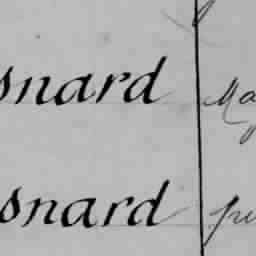 snard Ma
snard